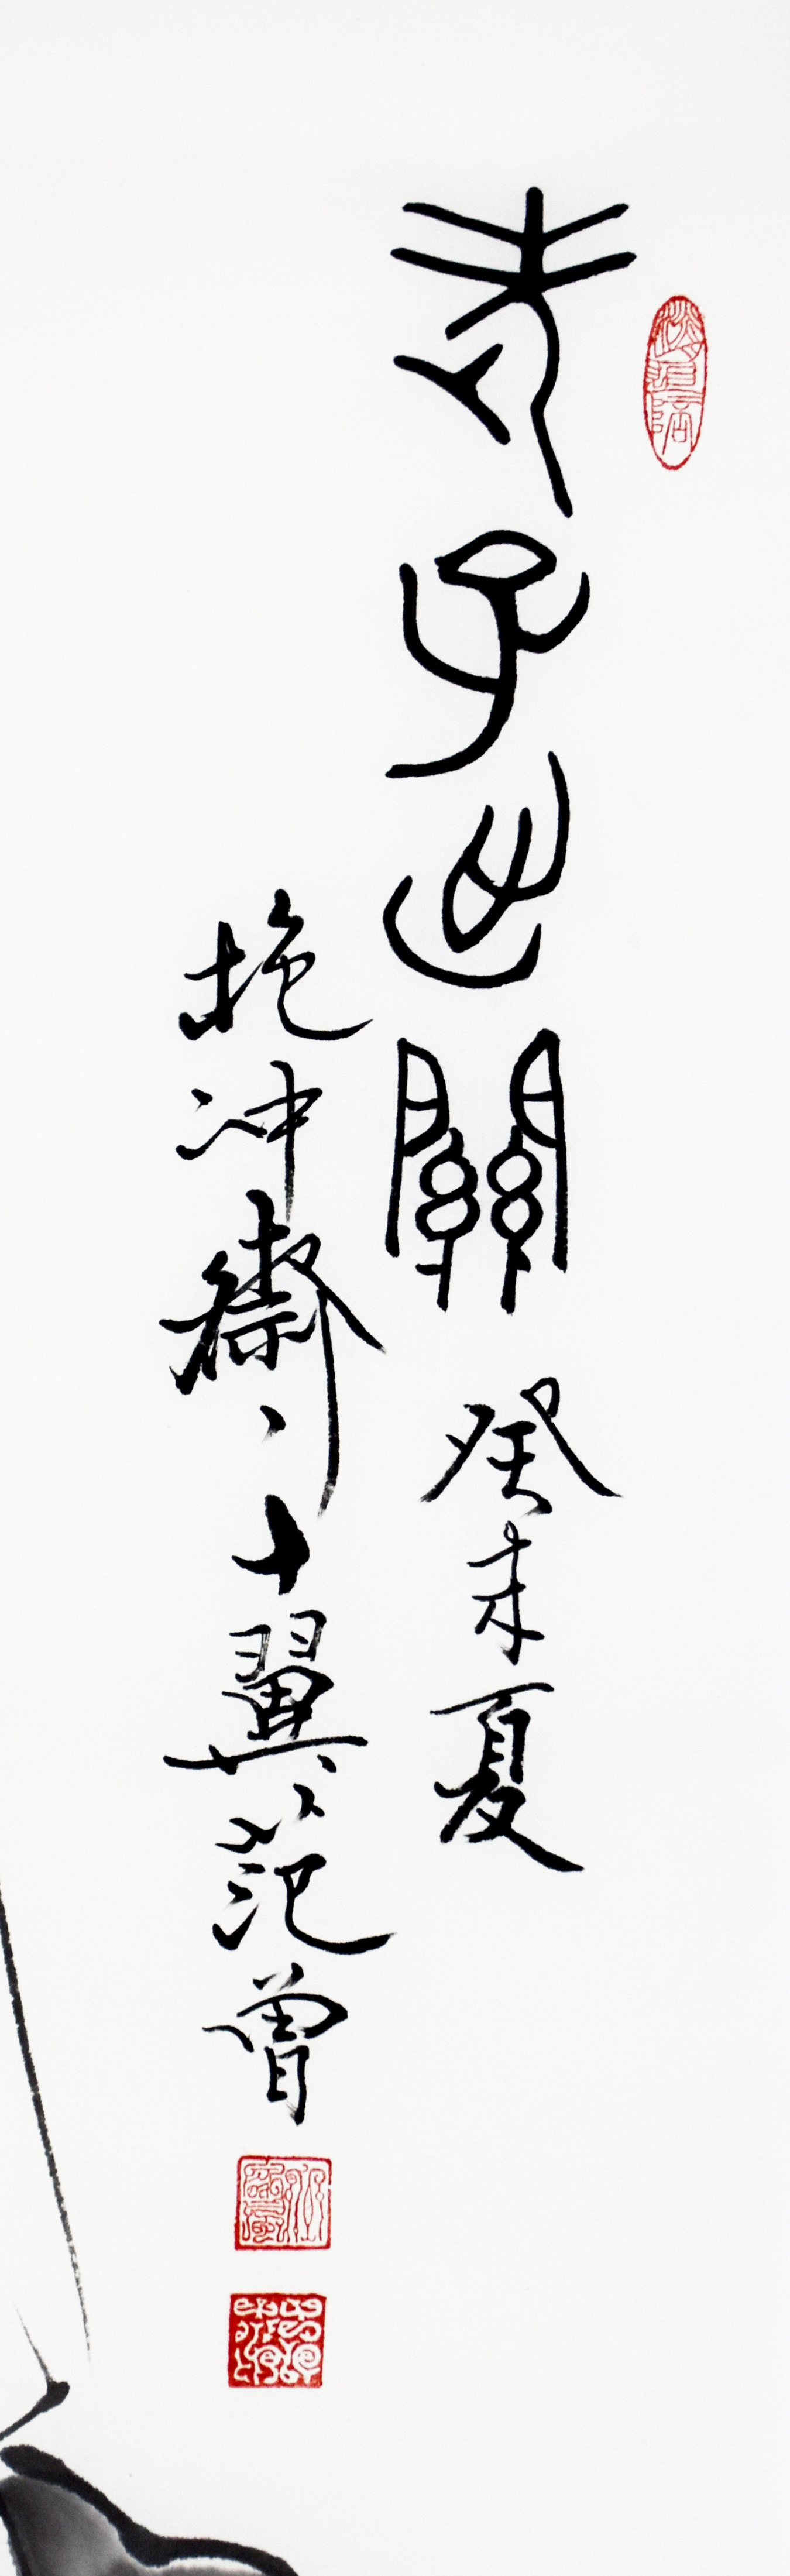 老子出關 癸未夏
抱冲齋十翼范曾